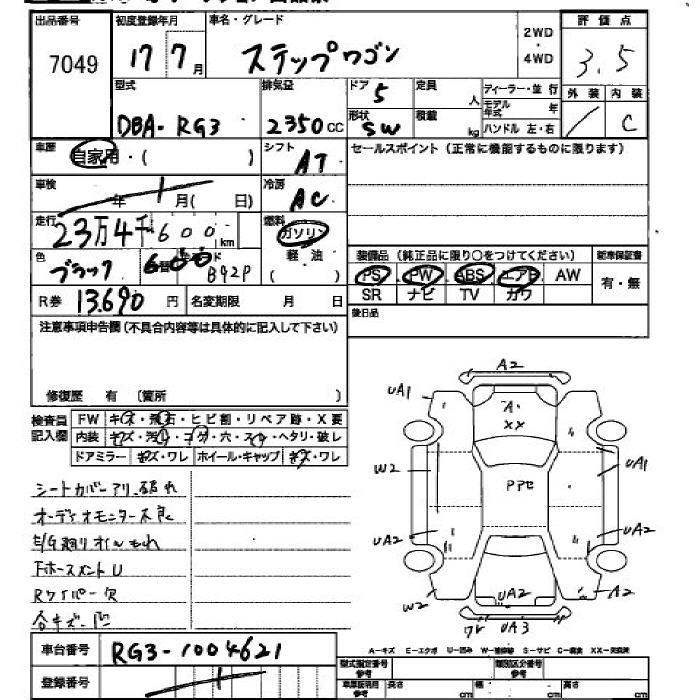 出品番号 初度登録年月 車名・グレード 2WD・4WD 評価点
7049 17年7月 ステップワゴン 3.5
型式 排気量 ドア 5 定員 人 ディーラー・並行 外装 内装
DBA-RG3 2350cc 形状 SW 積載 kg モデル年式 年 ハンドル 左・右 / C
車歴 自家用・( ) シフト AT セールスポイント(正常に機能するものに限ります)
車検 年 1 月( 日) 冷房 AC
走行 23万4千600km 燃料 ガソリン
色 ブラック 600 B92P 軽油 ( ) 装備品(純正品に限り〇をつけてください) 新車保証書
PS PW ABS エアB AW 有・無
R券 13,690円 名変期限 月 日 SR ナビ TV カワ
注意事項申告欄(不具合内容等は具体的に記入して下さい) 後日品
修復歴 有 〔箇所 〕
検査員記入欄 FW キズ・飛石・ヒビ割・リペア跡・X要
内装 キズ・汚れ・コゲ・穴・スレ・ヘタリ・破レ
ドアミラー キズ・ワレ ホイール・キャップ キズ・ワレ
シートカバーアリ、破れ
オーディオモニター不良
E/G廻りオイルもれ
Rワイパー欠
各キズ・凹
A2
UA1
A1
XX
W2
Pアセ
UA1
UA2
UA2
W2
UA2
A2
ワレ UA3
A-キズ E-エクボ U-凹み W-補修跡 S-サビ C-腐食 XX-交換済
車台番号 RG3-1004621
登録番号 1
型式指定番号 参考 類別区分番号 参考
車庫証明用 参考 長さ cm 幅 cm 高さ cm